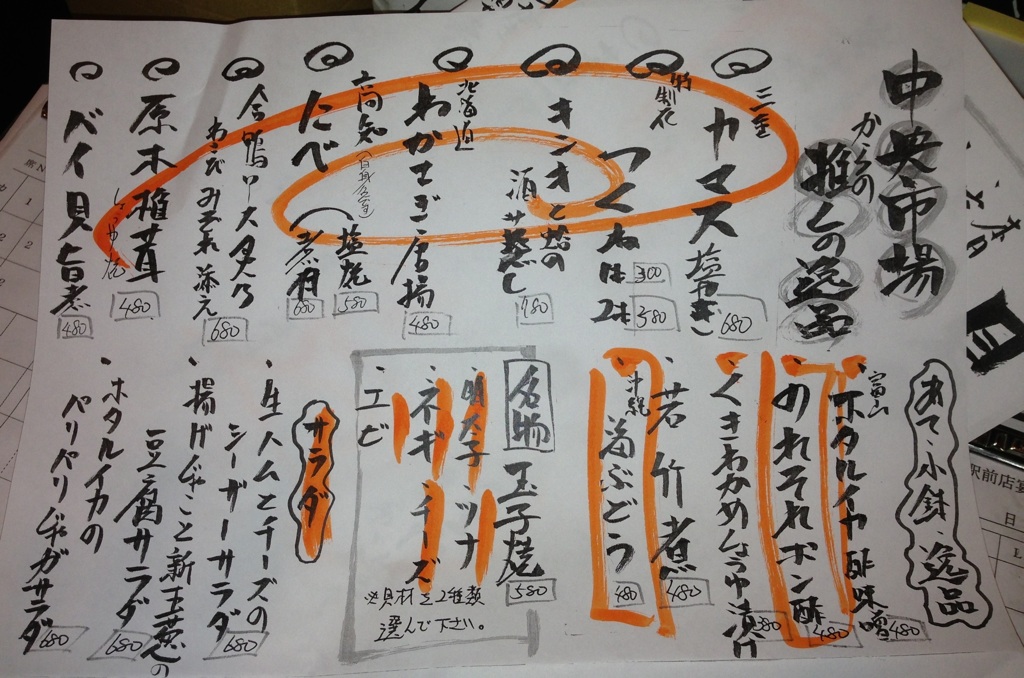 中央市場
からの
推しの逸品
三重
カマス塩焼き 680
自家製
つくね 1本 300
2本 580
キンキと茄の
酒蒸し 980
北海道
わかさぎ唐揚 480
高知
たべ (白身魚) 塩焼 580
煮付 680
合鴨ロースタタキ
わさびみぞれ添え 680
原木椎茸
しょうゆ焼 480
バイ貝旨煮 480
あて・小鉢・逸品
富山
・ホタルイカ酢味噌 480
・のれそれポン酢 480
・くきわかめしょうゆ漬け 380
・若竹煮 480
・沖縄 海ぶどう 480
名物 玉子焼 580
・明太子 ツナ
ネギ チーズ
エビ
※具材を2種類
選んで下さい。
サラダ
・生ハムとチーズの
シーザーサラダ 680
・揚げじゃこと新玉葱の
豆腐サラダ 680
・ホタルイカの
パリパリじゃがサラダ 680
駅前店宴
日